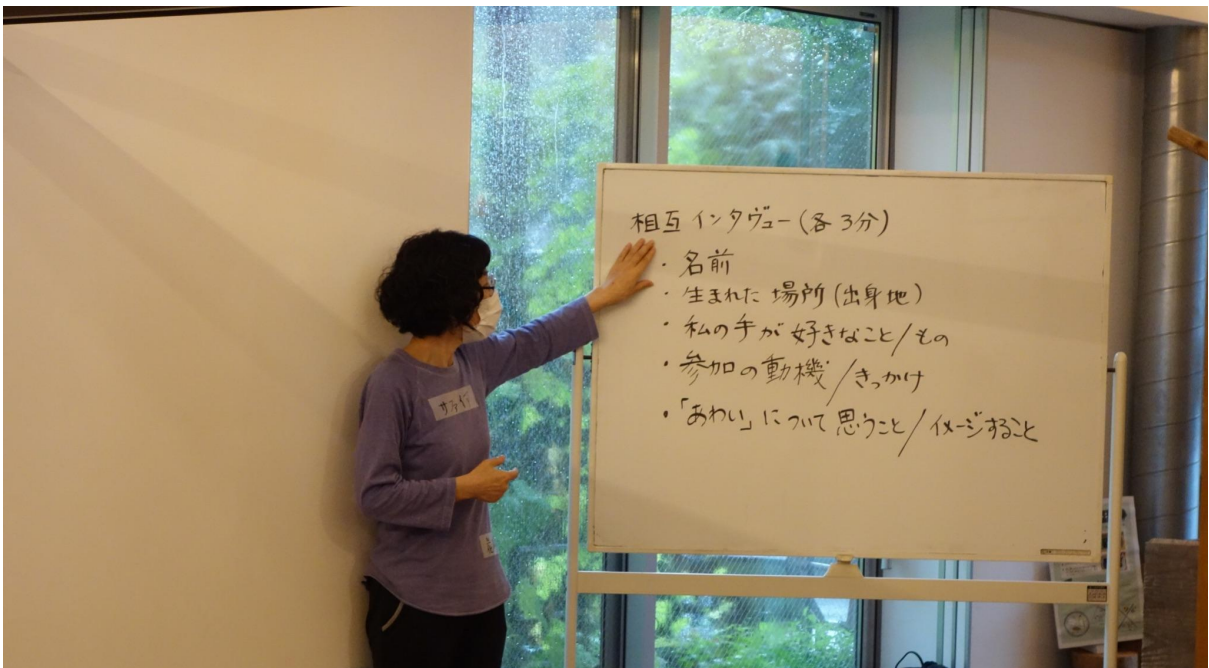 相互インタヴュー(各3分)
・名前
・生まれた場所(出身地)
・私の手が好きなこと/もの
・参加の動機/きっかけ
・「あわい」について思うこと/イメージすること